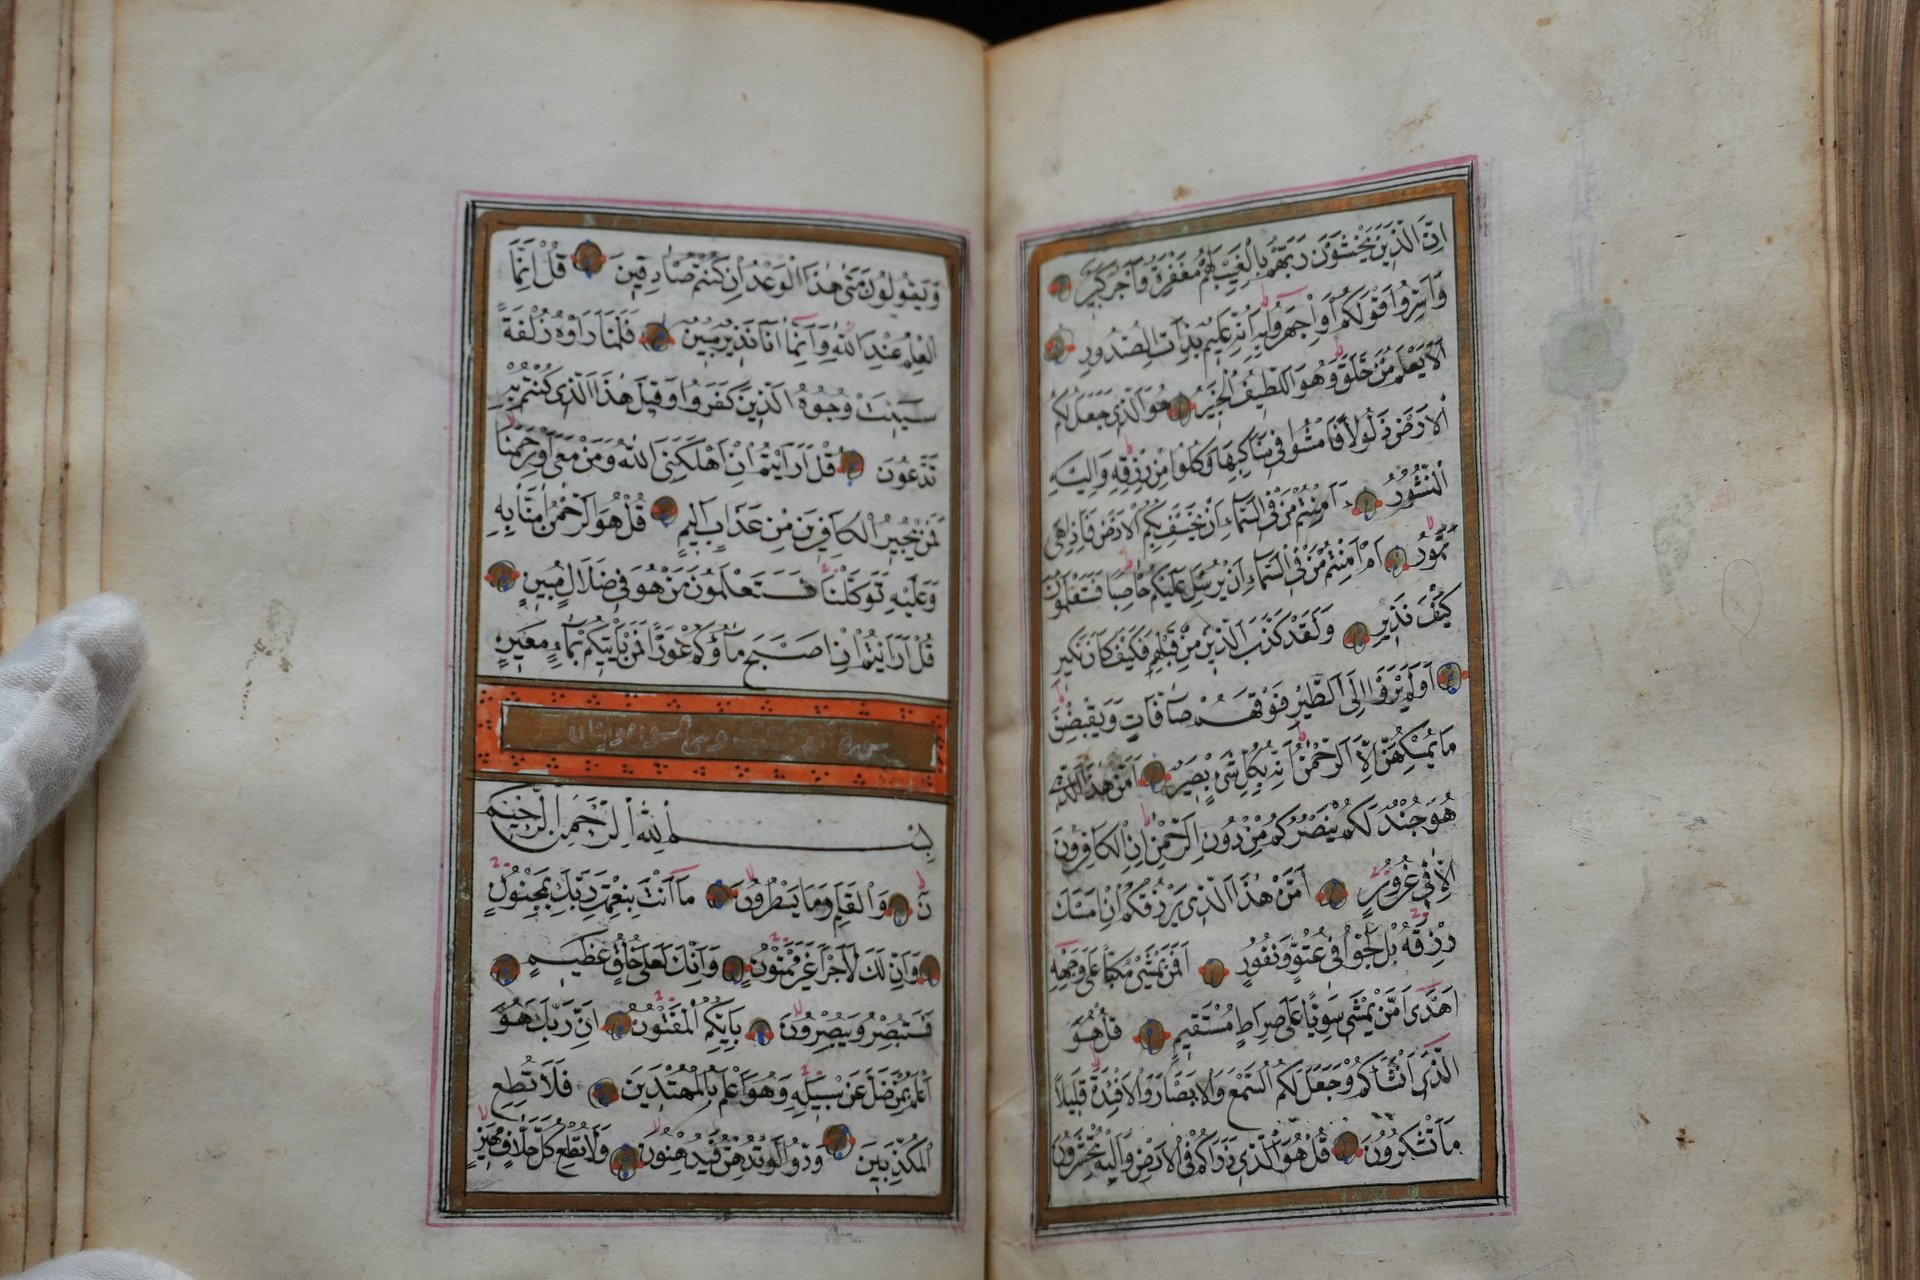 اِنَّ الَّذِينَ يَخْشَوْنَ رَبَّهُمْ بِالْغَيْبِ لَهُمْ مَغْفِرَةٌ وَاَجْرٌ كَبِيرٌ
وَاَسِرُّوا قَوْلَكُمْ اَوِاجْهَرُوا بِهِ اِنَّهُ عَلِيمٌ بِذَاتِ الصُّدُورِ
اَلَا يَعْلَمُ مَنْ خَلَقَ وَهُوَ اللَّطِيفُ الْخَبِيرُ هُوَ الَّذِي جَعَلَ لَكُمُ
الْاَرْضَ ذَلُولًا فَامْشُوا فِي مَنَاكِبِهَا وَكُلُوا مِنْ رِزْقِهِ وَاِلَيْهِ
النُّشُورُ ءَاَمِنْتُمْ مَنْ فِي السَّمَاءِ اَنْ يَخْسِفَ بِكُمُ الْاَرْضَ فَاِذَا هِيَ
تَمُورُ اَمْ اَمِنْتُمْ مَنْ فِي السَّمَاءِ اَنْ يُرْسِلَ عَلَيْكُمْ حَاصِبًا فَسَتَعْلَمُونَ
كَيْفَ نَذِيرِ وَلَقَدْ كَذَّبَ الَّذِينَ مِنْ قَبْلِهِمْ فَكَيْفَ كَانَ نَكِيرِ
اَوَلَمْ يَرَوْا اِلَى الطَّيْرِ فَوْقَهُمْ صَافَّاتٍ وَيَقْبِضْنَ
مَا يُمْسِكُهُنَّ اِلَّا الرَّحْمٰنُ اِنَّهُ بِكُلِّ شَيْءٍ بَصِيرٌ اَمَّنْ هٰذَا الَّذِي
هُوَ جُنْدٌ لَكُمْ يَنْصُرُكُمْ مِنْ دُونِ الرَّحْمٰنِ اِنِ الْكَافِرُونَ
اِلَّا فِي غُرُورٍ اَمَّنْ هٰذَا الَّذِي يَرْزُقُكُمْ اِنْ اَمْسَكَ
رِزْقَهُ بَلْ لَجُّوا فِي عُتُوٍّ وَنُفُورٍ اَفَمَنْ يَمْشِي مُكِبًّا عَلَى وَجْهِهِ
اَهْدَى اَمَّنْ يَمْشِي سَوِيًّا عَلَى صِرَاطٍ مُسْتَقِيمٍ قُلْ هُوَ
الَّذِي اَنْشَاَكُمْ وَجَعَلَ لَكُمُ السَّمْعَ وَالْاَبْصَارَ وَالْاَفْئِدَةَ قَلِيلًا
مَا تَشْكُرُونَ قُلْ هُوَ الَّذِي ذَرَاَكُمْ فِي الْاَرْضِ وَاِلَيْهِ تُحْشَرُونَ
وَيَقُولُونَ مَتَى هٰذَا الْوَعْدُ اِنْ كُنْتُمْ صَادِقِينَ قُلْ اِنَّمَا
الْعِلْمُ عِنْدَ اللّٰهِ وَاِنَّمَا اَنَا نَذِيرٌ مُبِينٌ فَلَمَّا رَاَوْهُ زُلْفَةً
سِيئَتْ وُجُوهُ الَّذِينَ كَفَرُوا وَقِيلَ هٰذَا الَّذِي كُنْتُمْ بِهِ
تَدَّعُونَ قُلْ اَرَاَيْتُمْ اِنْ اَهْلَكَنِيَ اللّٰهُ وَمَنْ مَعِيَ اَوْ رَحِمَنَا
فَمَنْ يُجِيرُ الْكَافِرِينَ مِنْ عَذَابٍ اَلِيمٍ قُلْ هُوَ الرَّحْمٰنُ اٰمَنَّا بِهِ
وَعَلَيْهِ تَوَكَّلْنَا فَسَتَعْلَمُونَ مَنْ هُوَ فِي ضَلَالٍ مُبِينٍ
قُلْ اَرَاَيْتُمْ اِنْ اَصْبَحَ مَاؤُكُمْ غَوْرًا فَمَنْ يَاْتِيكُمْ بِمَاءٍ مَعِينٍ
بِسْمِ اللّٰهِ الرَّحْمٰنِ الرَّحِيمِ
نٓ وَالْقَلَمِ وَمَا يَسْطُرُونَ مَا اَنْتَ بِنِعْمَةِ رَبِّكَ بِمَجْنُونٍ
وَاِنَّ لَكَ لَاَجْرًا غَيْرَ مَمْنُونٍ وَاِنَّكَ لَعَلَى خُلُقٍ عَظِيمٍ
فَسَتُبْصِرُ وَيُبْصِرُونَ بِاَيِّكُمُ الْمَفْتُونُ اِنَّ رَبَّكَ هُوَ
اَعْلَمُ بِمَنْ ضَلَّ عَنْ سَبِيلِهِ وَهُوَ اَعْلَمُ بِالْمُهْتَدِينَ فَلَا تُطِعِ
الْمُكَذِّبِينَ وَدُّوا لَوْ تُدْهِنُ فَيُدْهِنُونَ وَلَا تُطِعْ كُلَّ حَلَّافٍ مَهِينٍ